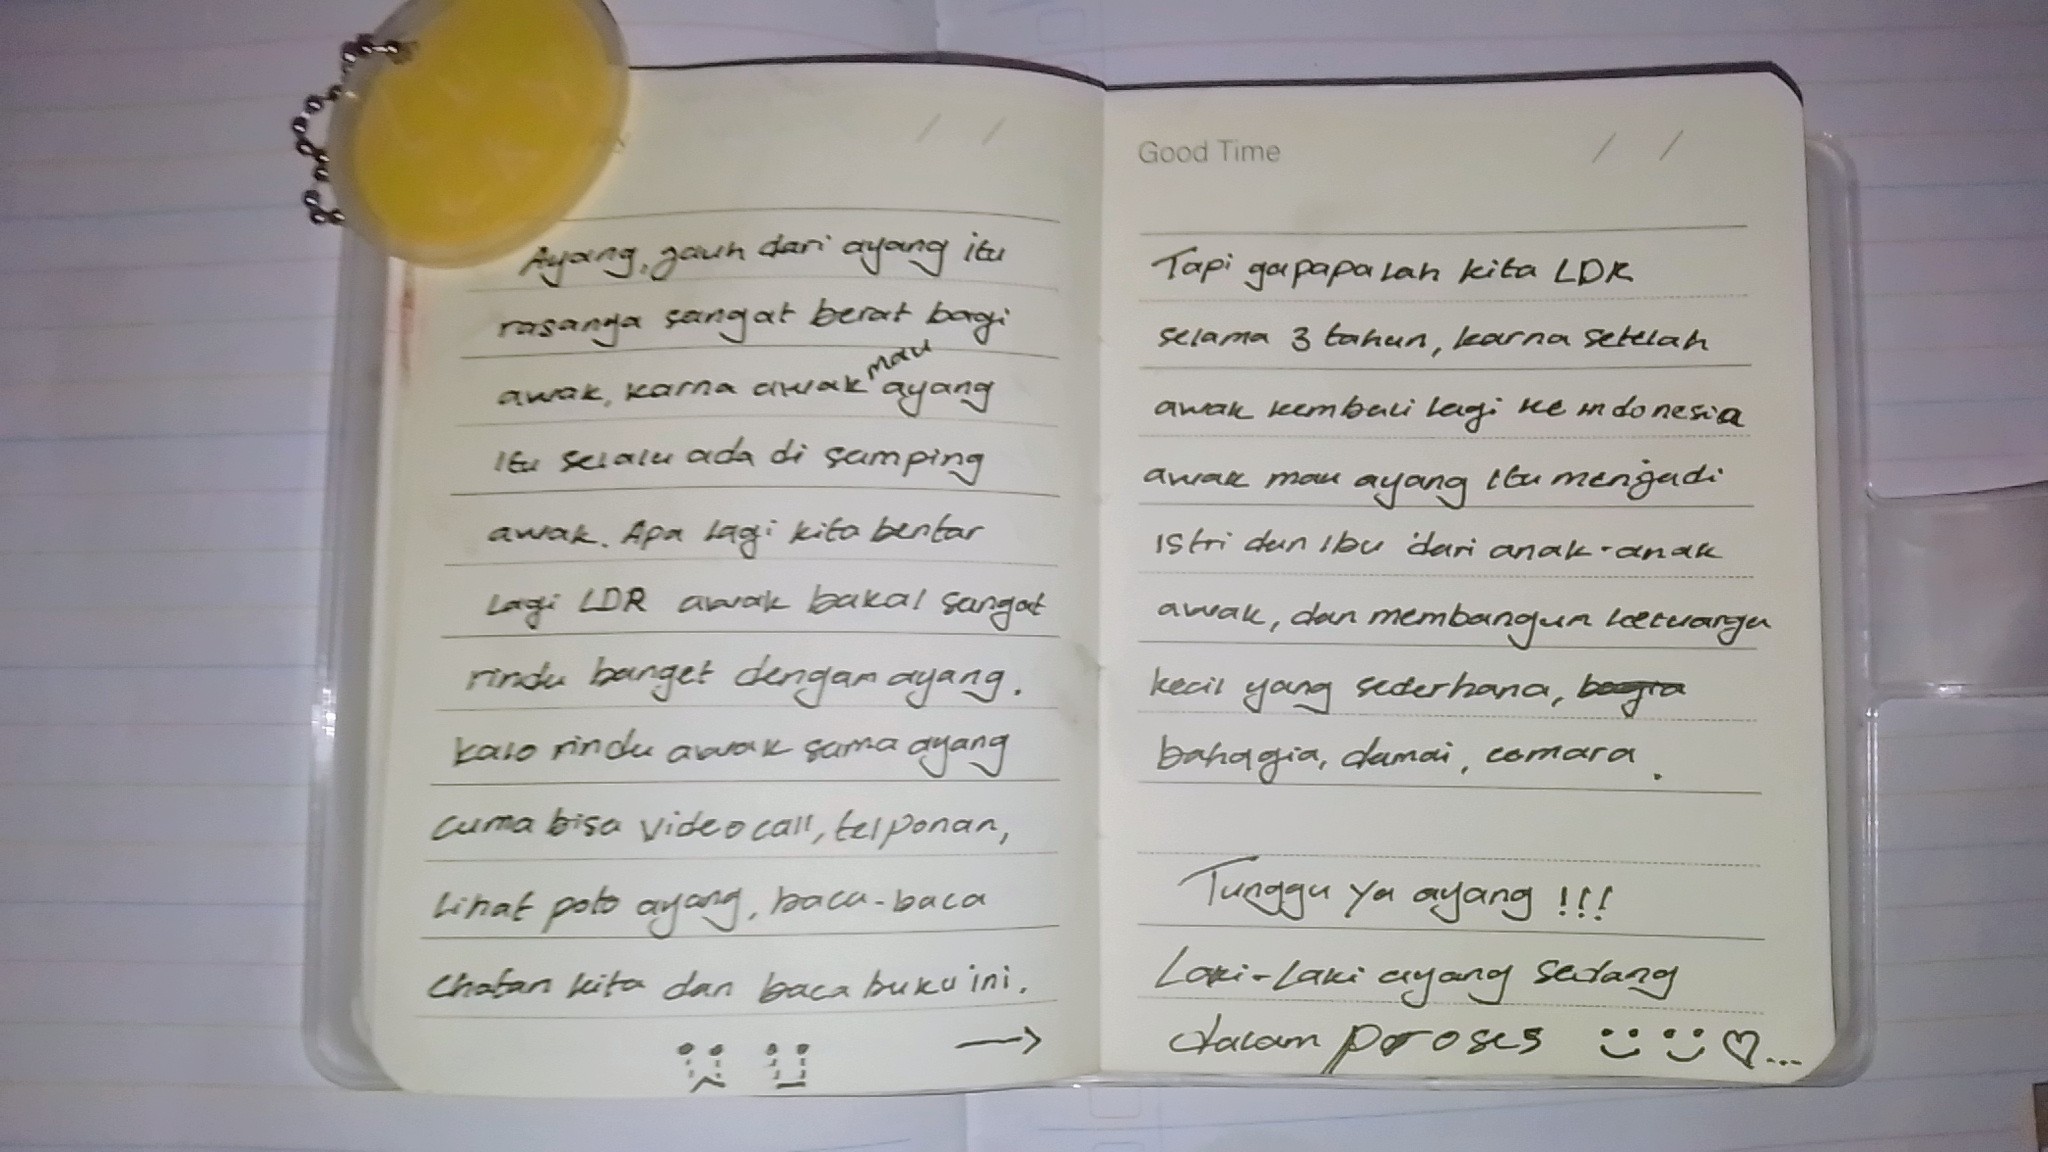 Ayang, jauh dari ayang itu
rasanya sangat berat bagi
awak, karna awak mau ayang
itu selalu ada di samping
awak. Apa lagi kita bentar
lagi LDR awak bakal sangat
rindu banget dengan ayang.
kalo rindu awak sama ayang
cuma bisa video call, telponan,
lihat poto ayang, baca-baca
chatan kita dan baca buku ini.
Good Time / /
Tapi gapapalah kita LDR
selama 3 tahun, karna setelah
awak kembali lagi ke indonesia
awak mau ayang itu menjadi
istri dan ibu dari anak-anak
awak, dan membangun keluarga
kecil yang sederhana, bagia
bahagia, damai, cemara.
Tunggu ya ayang !!!
Laki-Laki ayang sedang
dalam poroses